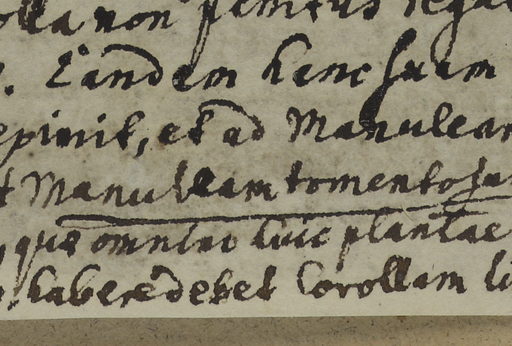 olla non penitus rega
. Eandem hanc suam
epinit, et ad Manulean
t Manuleam tomentosam
que omnino huic plantae
habere debet Corollam li